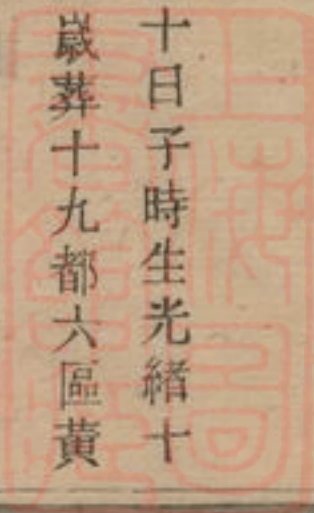 十日子時生光緒十
嵗葬十九都六區黄